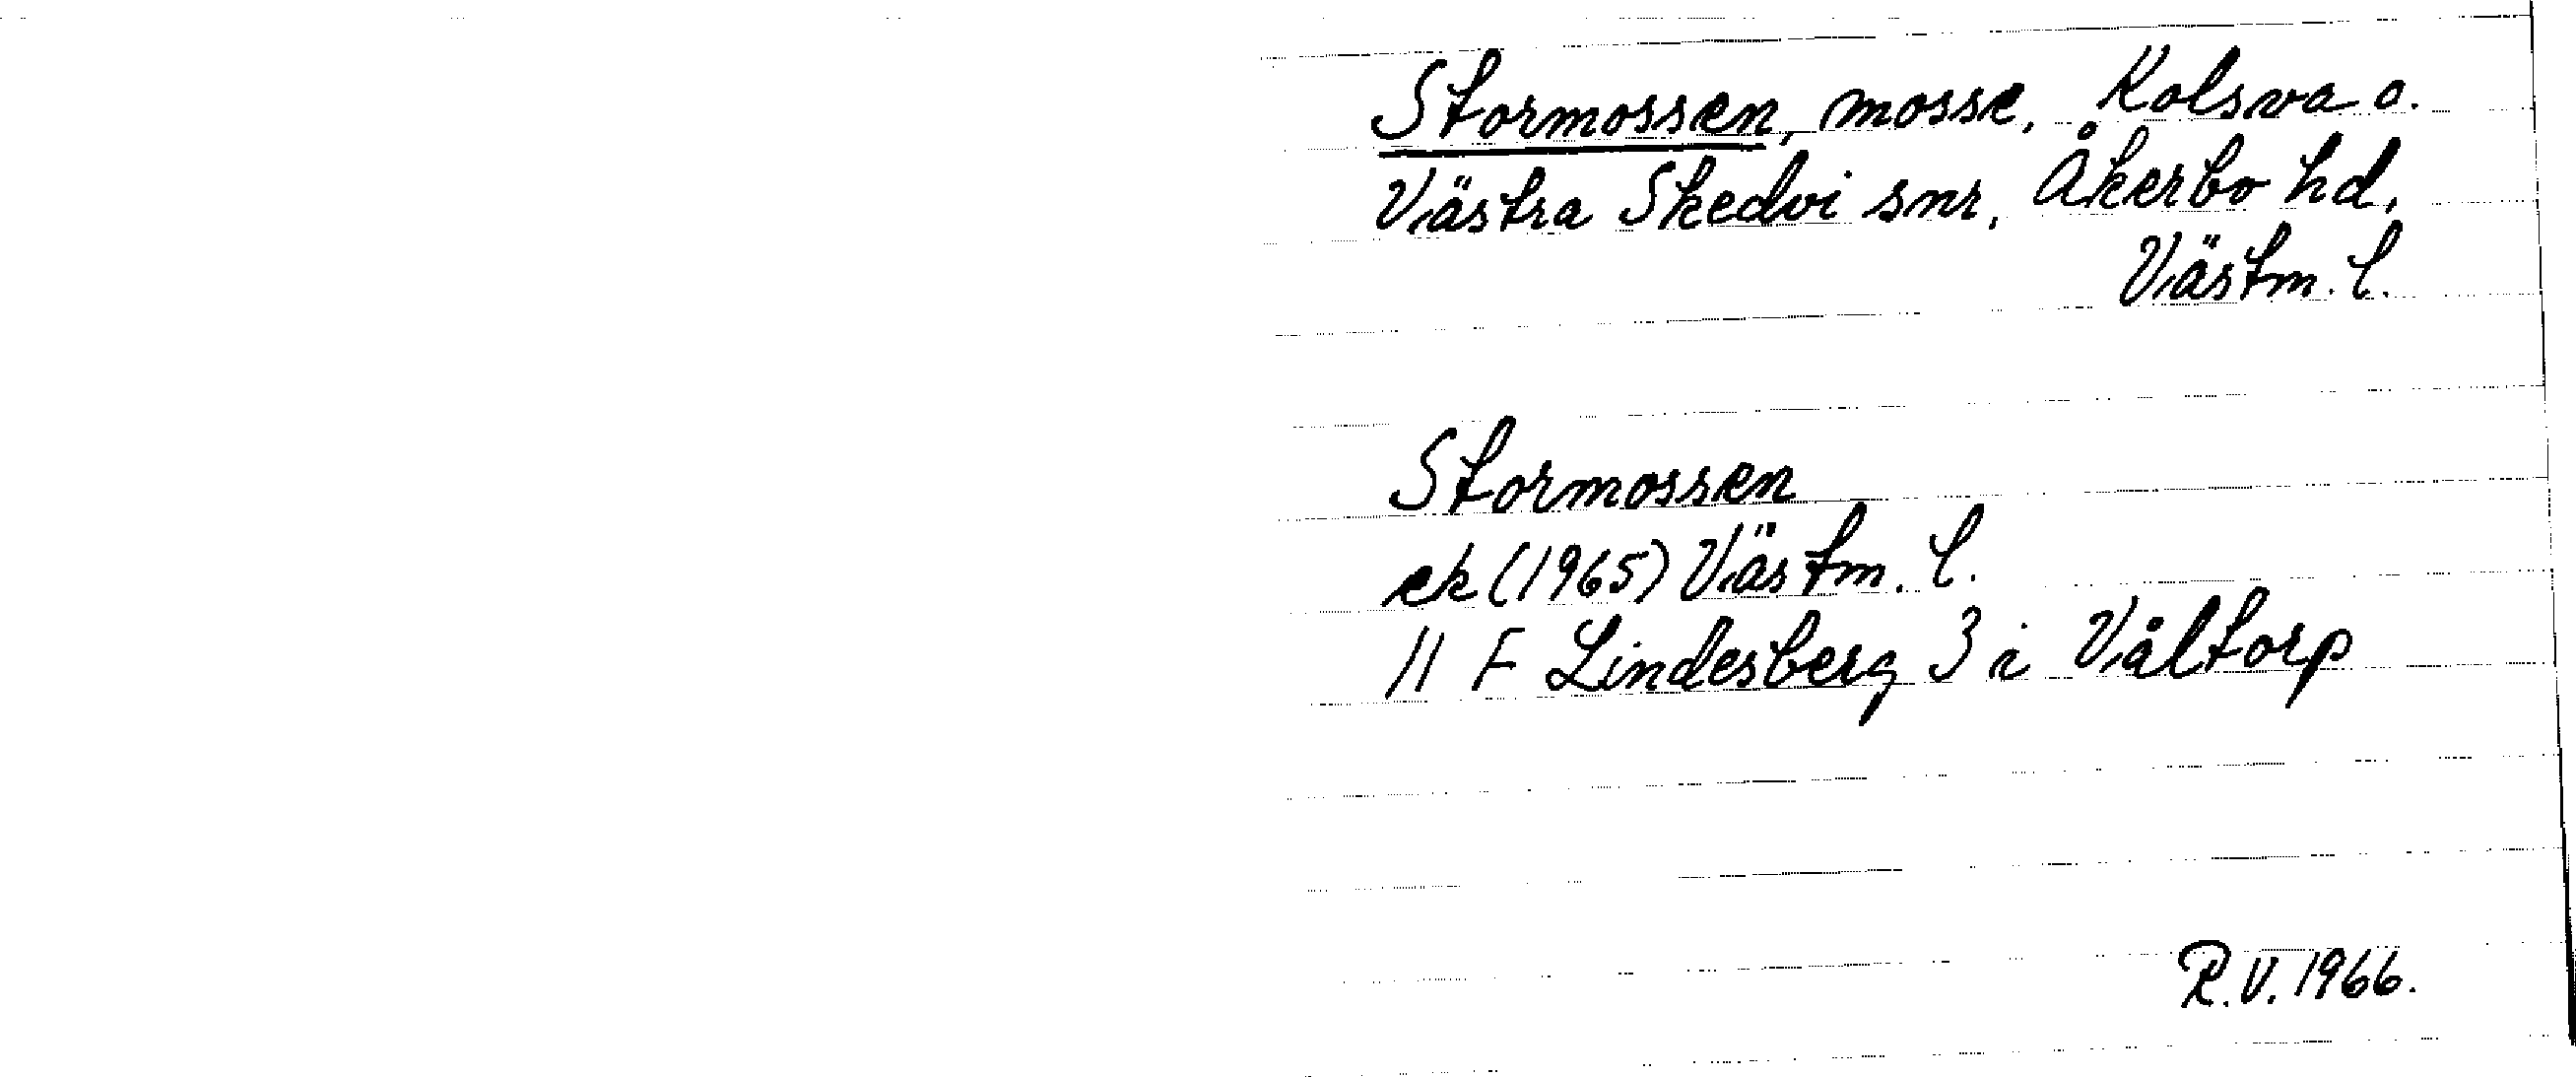 Stormossen, mosse, Kolsva o.
Västra Skedvi snr, Åkerbo hd,
Västm. l.
Stormossen
ek (1965) Västm. l.
11 F Lindesberg 3 i Våltorp
R.V. 1966.